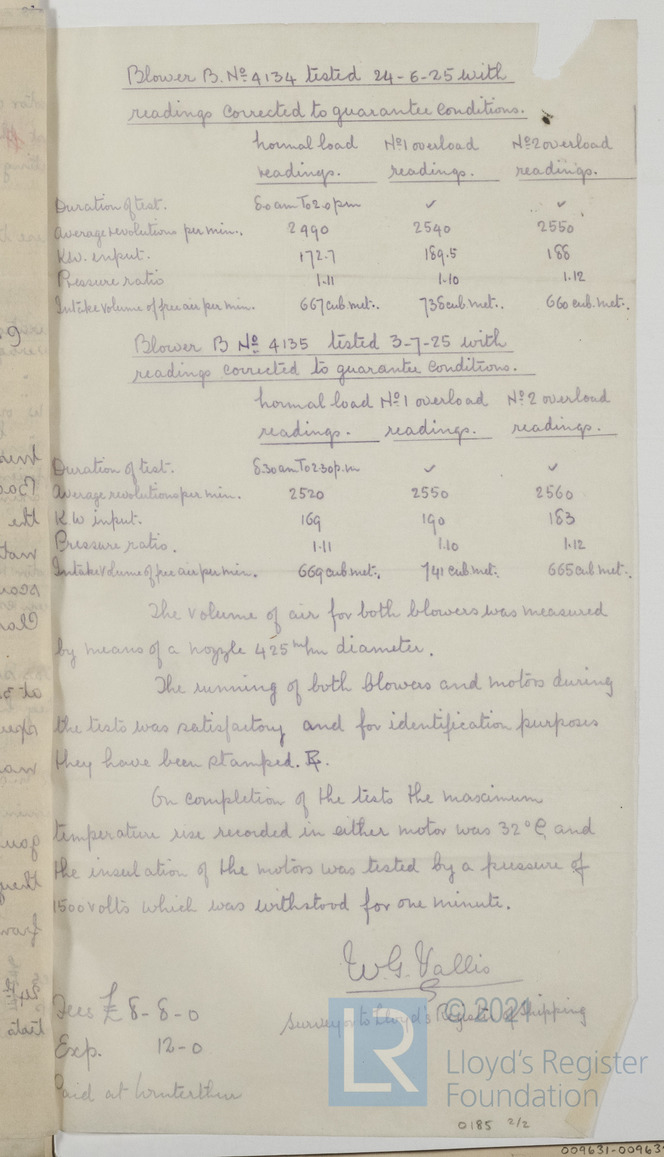 Blower B. Nº 4134 tested 24-6-25 with
readings corrected to guarantee conditions.
normal load Nº1 overload Nº2 overload
readings. readings. readings.
Duration of test. 8.0am To 2.0pm ✓ ✓
Average revolutions per min.. 2490 2540 2550
K.W. input. 172.7 189.5 188
Pressure ratio 1.11 1.10 1.12
Intake volume of free air per min. 667 cub. met.. 738 cub. met.. 660 cub. met..
Blower B Nº 4135 tested 3-7-25 with
readings corrected to guarantee conditions.
normal load Nº1 overload Nº2 overload
readings. readings. readings.
Duration of test. 8.30am To 2.30p.m ✓ ✓
Average revolutions per min. 2520 2550 2560
K.W input. 169 190 183
Pressure ratio. 1.11 1.10 1.12
Intake volume of free air per min. 669 cub met.. 741 cub met. 665 cub met..
The volume of air for both blowers was measured
by means of a nozzle 425 m/m diameter.
The running of both blowers and motors during
the tests was satisfactory and for identification purposes
they have been stamped. LR.
On completion of the tests the maximum
temperature rise recorded in either motor was 32°C and
the insulation of the motors was tested by a pressure of
1500 volts which was withstood for one minute.
W.G. Vallis
Surveyor to Lloyd's Register of Shipping
Fees £ 8-8-0
Exp. 12-0
Paid at Winterthur
LR
© 2021
Lloyd's Register
Foundation
0185 2/2